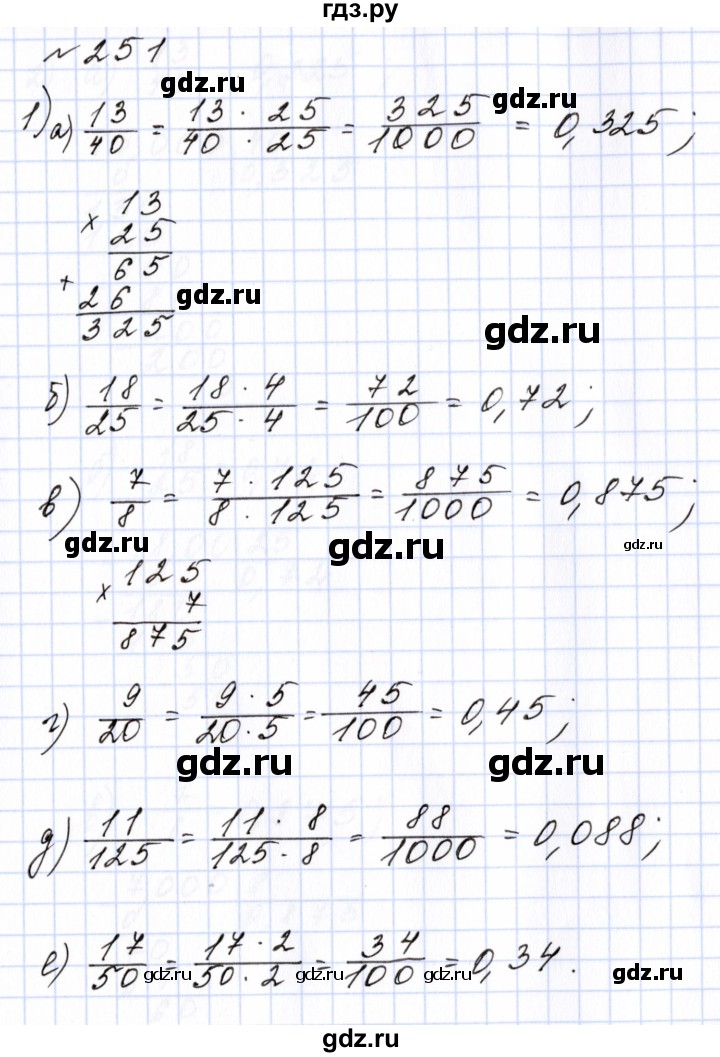 гдз.ру
№ 251
gdz.ru
1) а) 13/40 = 13 · 25/40 · 25 = 325/1000 = 0,325;
× 13
25
65
+ 26
gdz.ru
325
gdz.ru
б) 18/25 = 18 · 4/25 · 4 = 72/100 = 0,72;
в) 7/8 = 7 · 125/8 · 125 = 875/1000 = 0,875;
gdz.ru gdz.ru gdz.ru
× 125
7
875
г) 9/20 = 9 · 5/20 · 5 = 45/100 = 0,45;
gdz.ru gdz.ru
д) 11/125 = 11 · 8/125 · 8 = 88/1000 = 0,088;
е) 17/50 = 17 · 2/50 · 2 = 34/100 = 0,34.
gdz.ru gdz.ru gdz.ru gdz.ru
gdz.ru